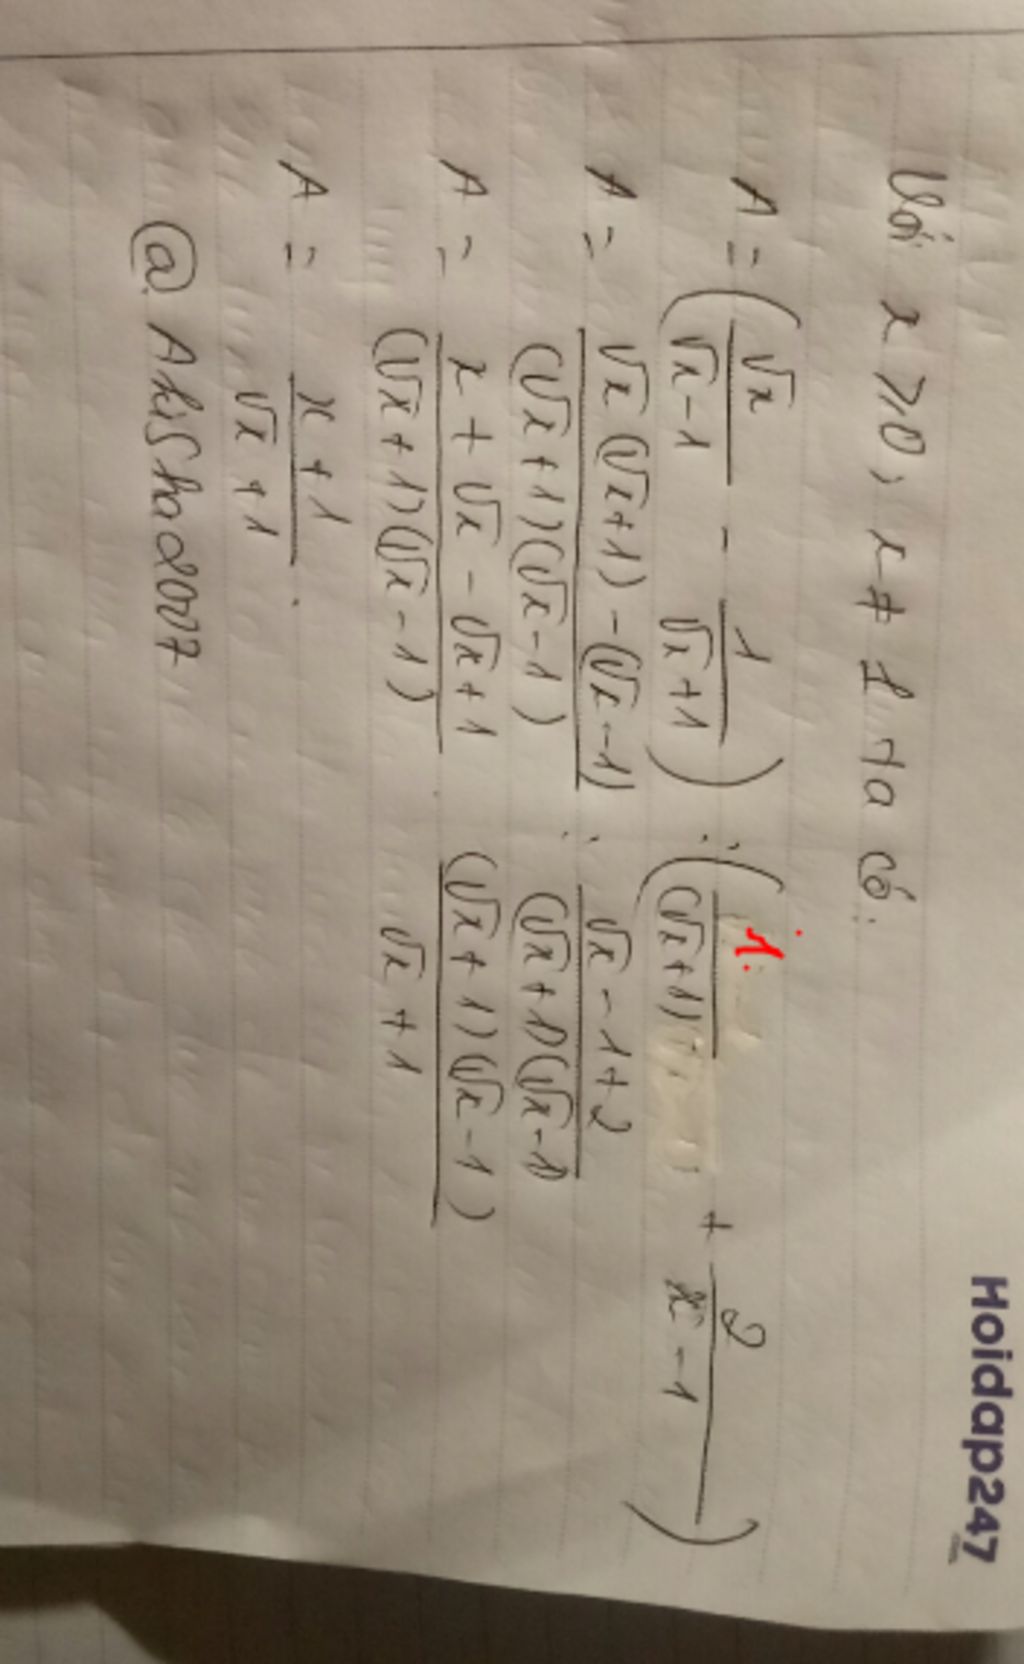 Hoidap247
.com
Với x ⩾ 0, x ≠ 1 ta có:
A = (√x/(√x-1) - 1/(√x+1)) : (1/(√x+1) + 2/(x-1))
A = (√x(√x+1) - (√x-1))/((√x+1)(√x-1)) : (√x-1+2)/((√x+1)(√x-1))
A = (x + √x - √x + 1)/((√x+1)(√x-1)) . ((√x+1)(√x-1))/(√x+1)
A = (x+1)/(√x+1) .
@ AkiShha2007